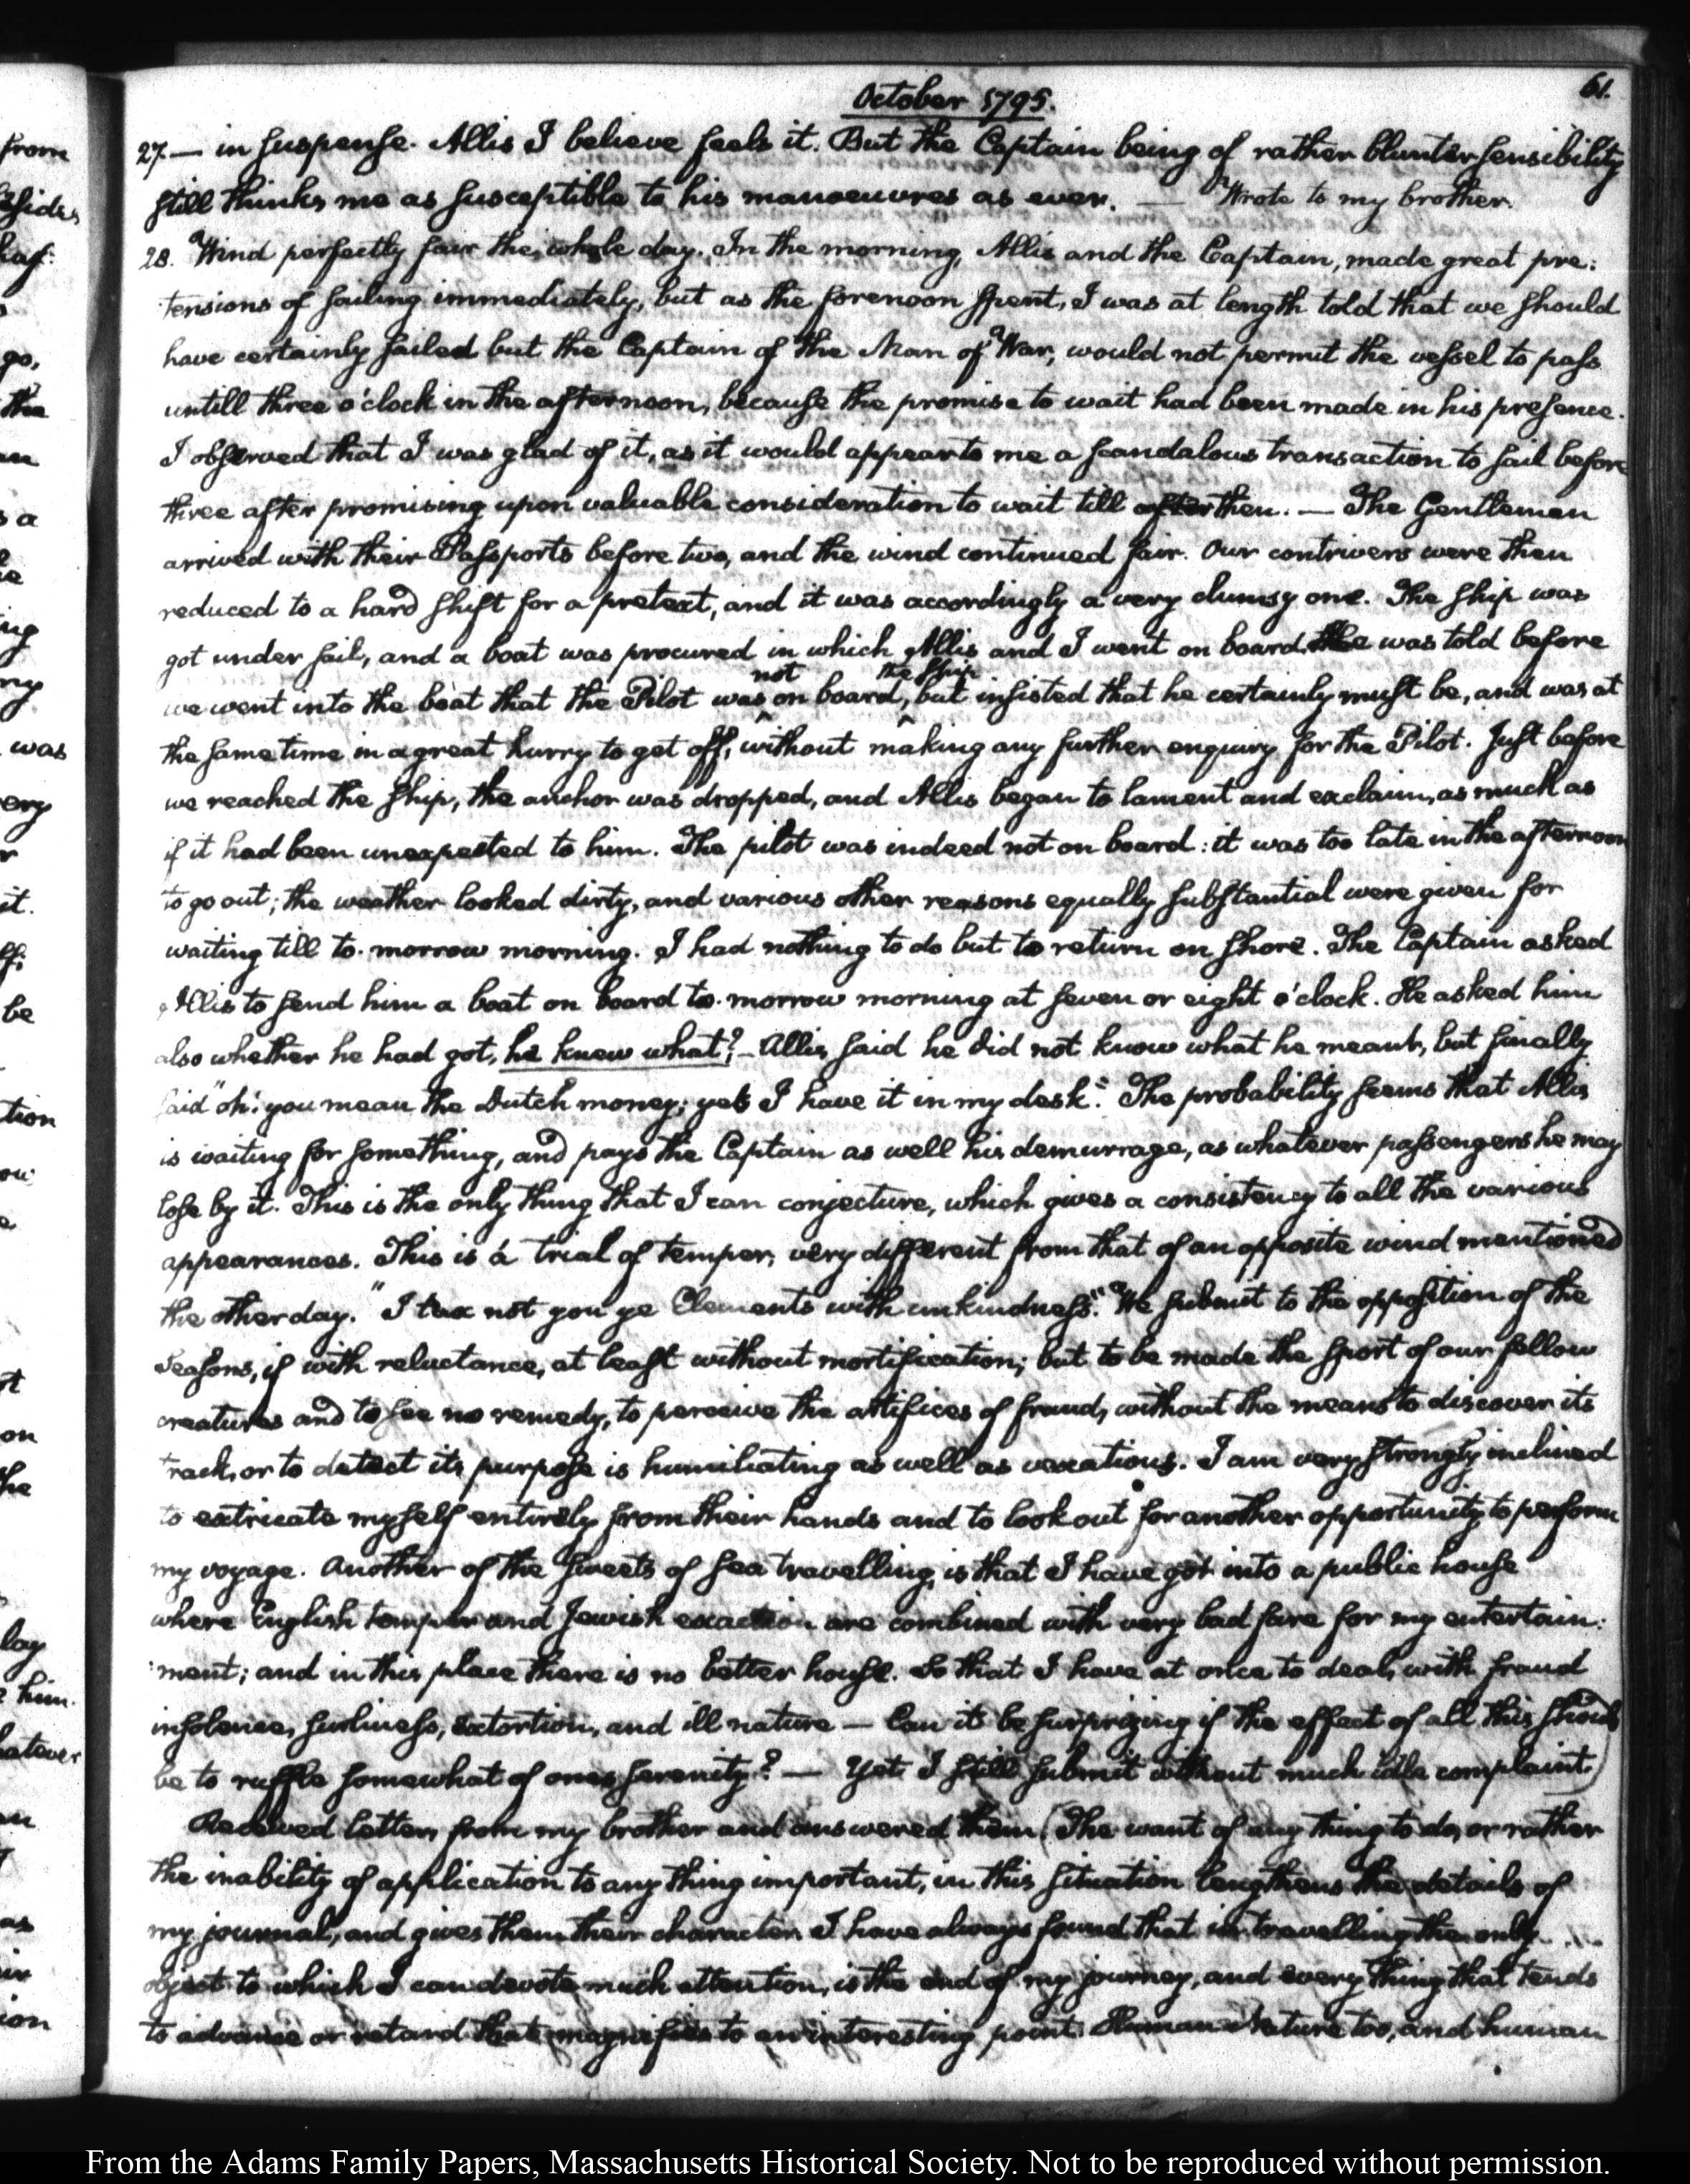 October 1795.
61.
27. — in suspense. Allis I believe feels it. But the Captain being of rather blunter sensibility
still thinks me as susceptible to his manoeuvres as ever. — Wrote to my brother.
28. Wind perfectly fair the whole day. In the morning, Allis and the Captain, made great pre:
tensions of sailing immediately, but as the forenoon spent, I was at length told that we should
have certainly sailed but the Captain of the Man of War, would not permit the vessel to pass
untill three o'clock in the afternoon, because the promise to wait had been made in his presence.
I observed that I was glad of it, as it would appear to me a scandalous transaction to sail before
three after promising upon valuable consideration to wait till after then. — The Gentlemen
arrived with their Passports before two, and the wind continued fair. Our contrivers were then
reduced to a hard shift for a pretext, and it was accordingly a very clumsy one. The ship was
got under sail, and a boat was procured in which Allis and I went on board. He was told before
we went into the boat that the Pilot was not on board, but insisted that he certainly must be, and was at
the same time in a great hurry to get off, without making any further enquiry for the Pilot. Just before
we reached the ship, the anchor was dropped, and Allis began to lament and exclaim, as much as
if it had been unexpected to him. The pilot was indeed not on board: it was too late in the afternoon
to go out; the weather looked dirty, and various other reasons equally substantial were given for
waiting till to-morrow morning. I had nothing to do but to return on shore. The Captain asked
Allis to send him a boat on board to-morrow morning at seven or eight o'clock. He asked him
also whether he had got, he knew what? — Allis said he did not know what he meant, but finally
said "oh! you mean the Dutch money; yes I have it in my desk." The probability seems that Allis
is waiting for something, and pays the Captain as well his demurrage, as whatever passengers he may
lose by it. This is the only thing that I can conjecture, which gives a consistency to all the various
appearances. This is a trial of temper, very different from that of an opposite wind mentioned
the other day. "I tax not you ye Elements with unkindness." We submit to the opposition of the
Seasons, if with reluctance, at least without mortification; but to be made the sport of our fellow
creatures and to see no remedy, to perceive the artifices of fraud, without the means to discover its
track, or to detect its purpose is humiliating as well as vexatious. I am very strongly inclined
to extricate myself entirely from their hands and to look out for another opportunity to perform
my voyage. Another of the sweets of sea travelling, is that I have got into a public house
where English temper and Jewish exaction are combined with very bad fare for my entertain:
ment; and in this place there is no better house. So that I have at once to deal, with fraud
insolence, surliness, extortion, and ill nature — Can it be surprizing if the effect of all this should
be to ruffle somewhat of ones serenity? — Yet I still submit without much idle complaint.
Received letters from my brother and answered them (The want of any thing to do, or rather
the inability of application to any thing important, in this situation lengthens the details of
my journal, and gives them their character. I have always found that in travelling the only
object to which I can devote much attention, is the end of my journey, and every thing that tends
to advance or retard that magnifies to an interesting point. Human Nature too, and human
the ship
From the Adams Family Papers, Massachusetts Historical Society. Not to be reproduced without permission.